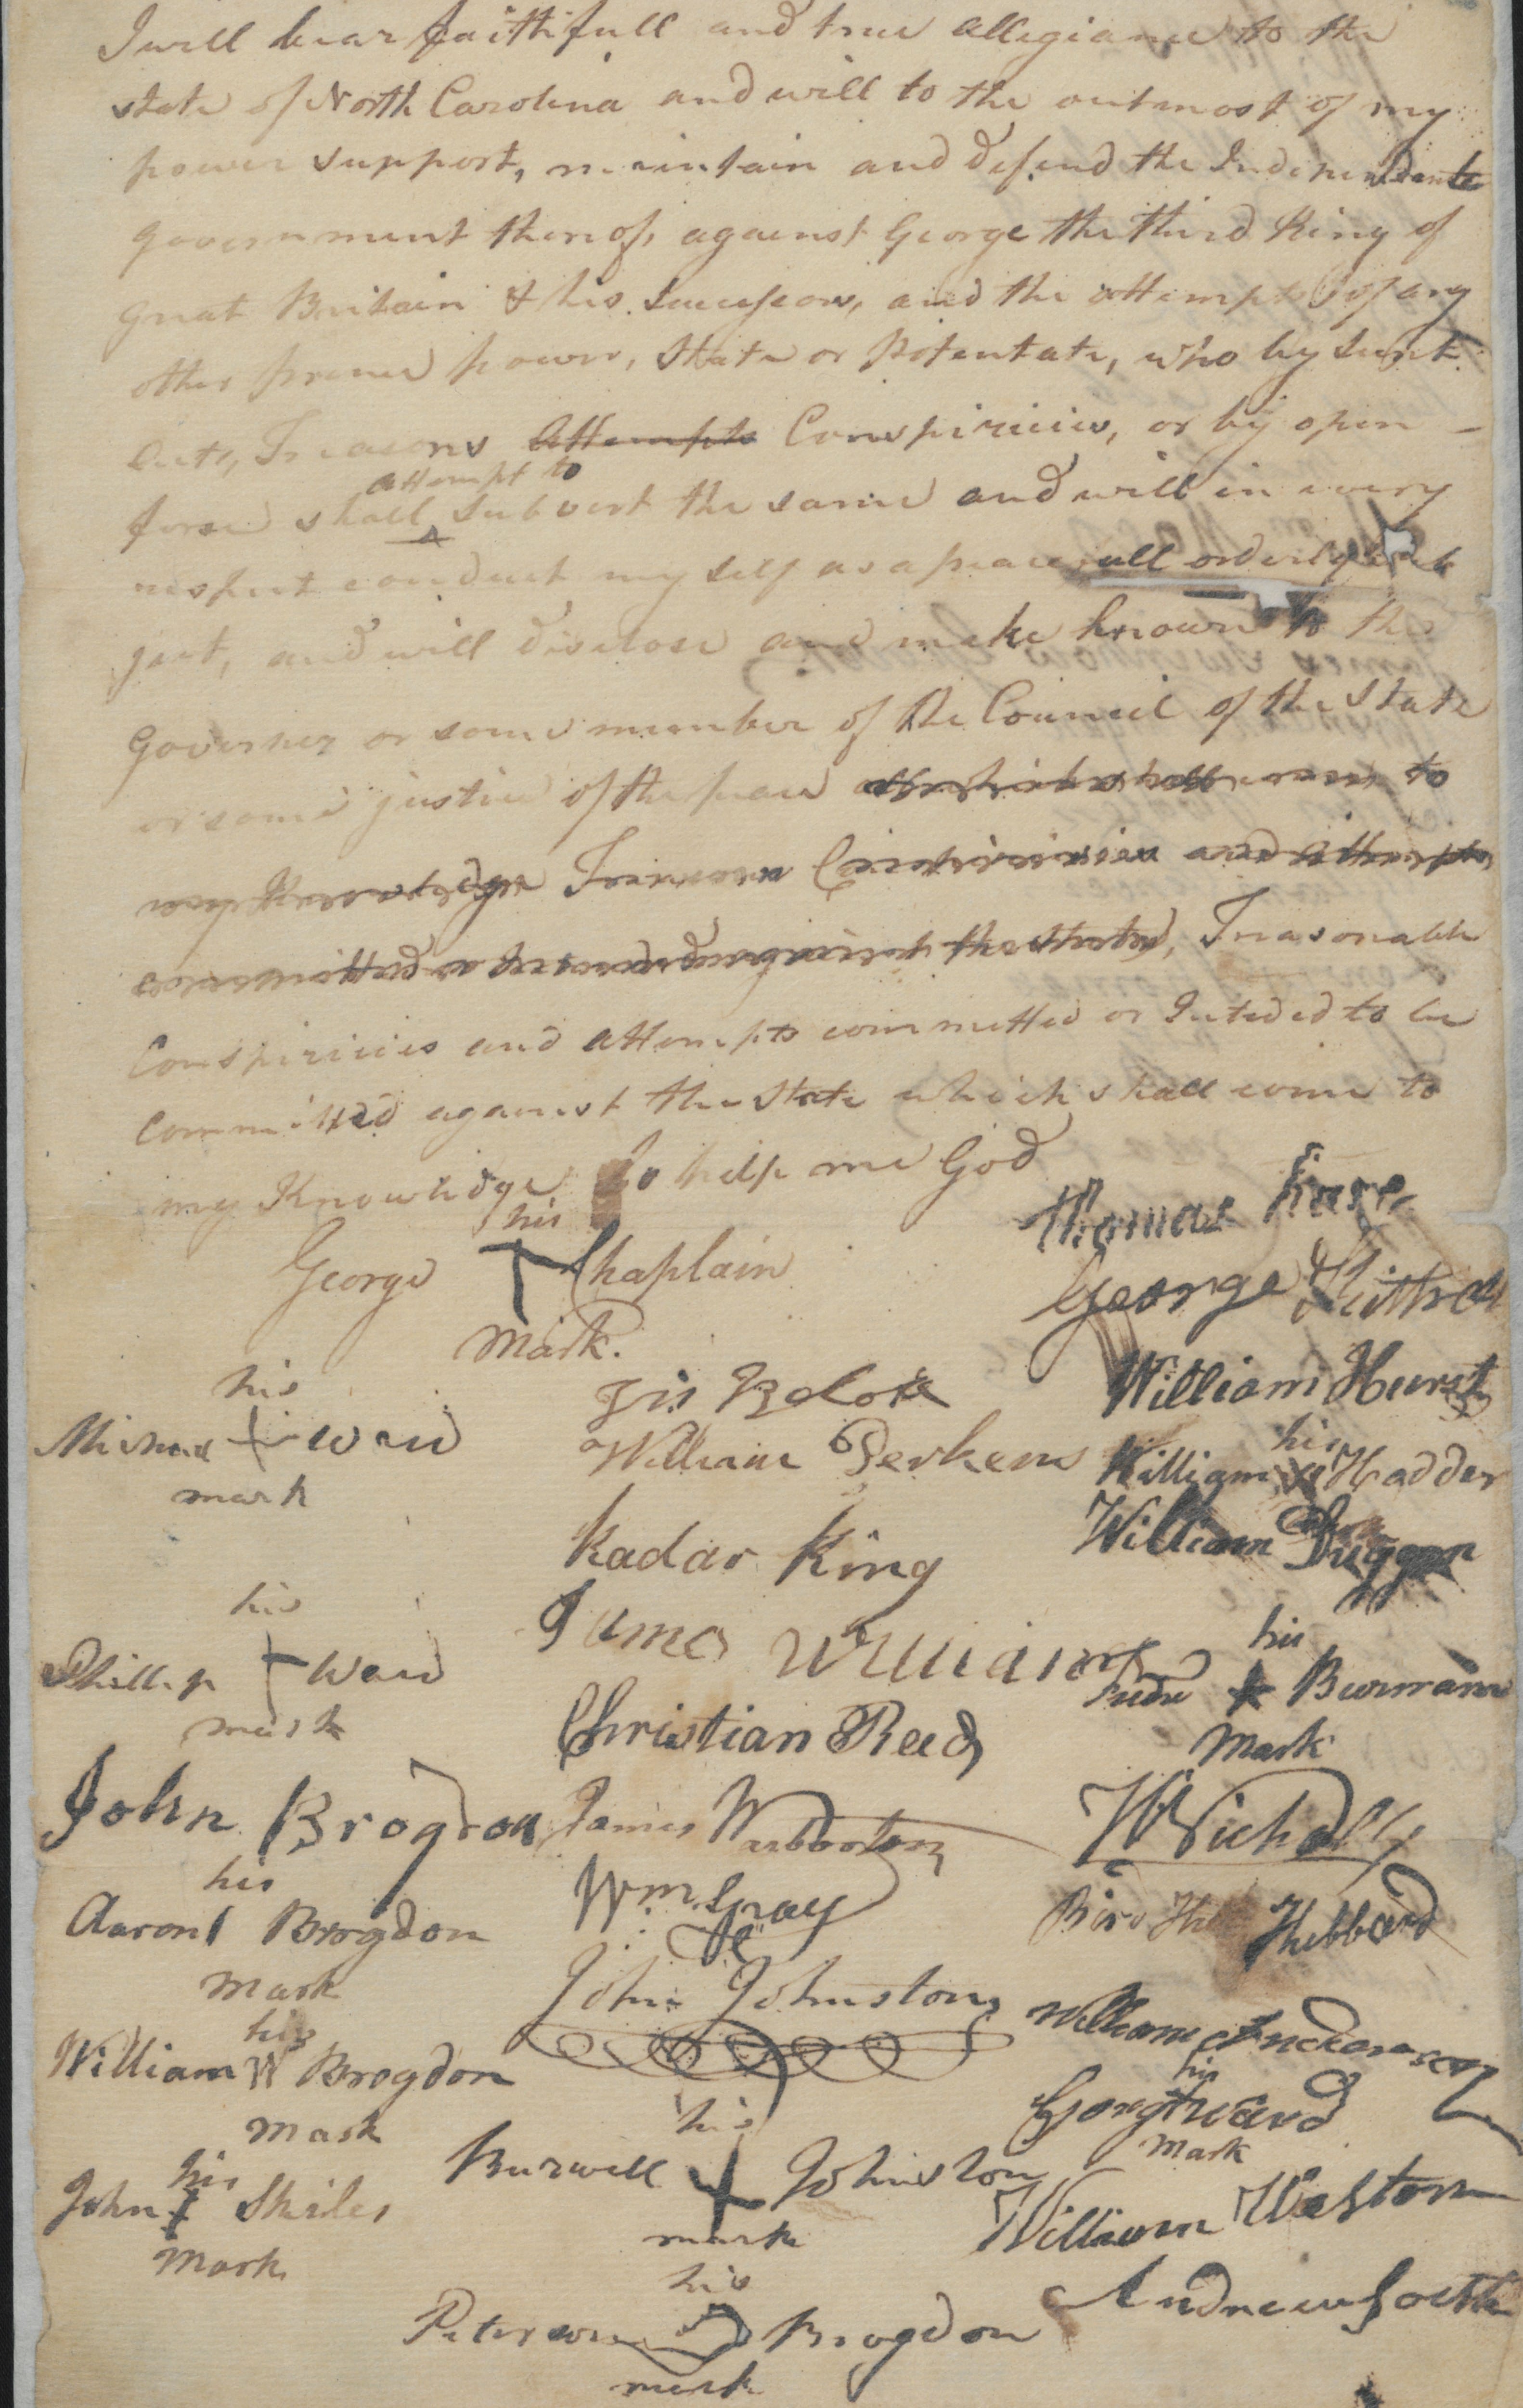 I will bear faithfull and true allegiance to the
state of North Carolina and will to the outmost of my
power support, maintain and defend the Independente
government thereof, against George the third King of
great Britain & his Successors, and the attempts of any
other prince power, State or Potentate, who by Secrt
Arts, Treasons Attempts Conspiricies, or by open
attempt to
force shall subvert the same and will in every
respect conduct my self as a peacefull orderly sub
ject, and will disclose and make known to the
Governer or some member of the Council of the State
or some justice of the peace which shall come to
my Knowledge Treason Conspiricies and attempts
committed or intended against the State, Treasonable
Conspiricies and attempts committed or Inteded to be
Committed against the State which shall come to
my Knowledge So help me God
Thomas
his
George Chaplain
mark.
George
William Hurst
his
Michael Ward
mark
William Perkens
his
William Hadder
Kadar King
William Duggan
his
Phillip Ward
mark
James Williams
his
Burman
Mark
Christian Reed
John Brogdon
James Warburton
W Nicholls
his
Aaron Brogdon
Mark
Wm. Gray
Hebbard
John Johnston
his
William W Brogdon
Mark
William
his
George Ward
Mark
his
Burwell Johnston
mark
his
John Skiles
Mark
William Weston
his
Peterson Brogdon
mark
Andrew